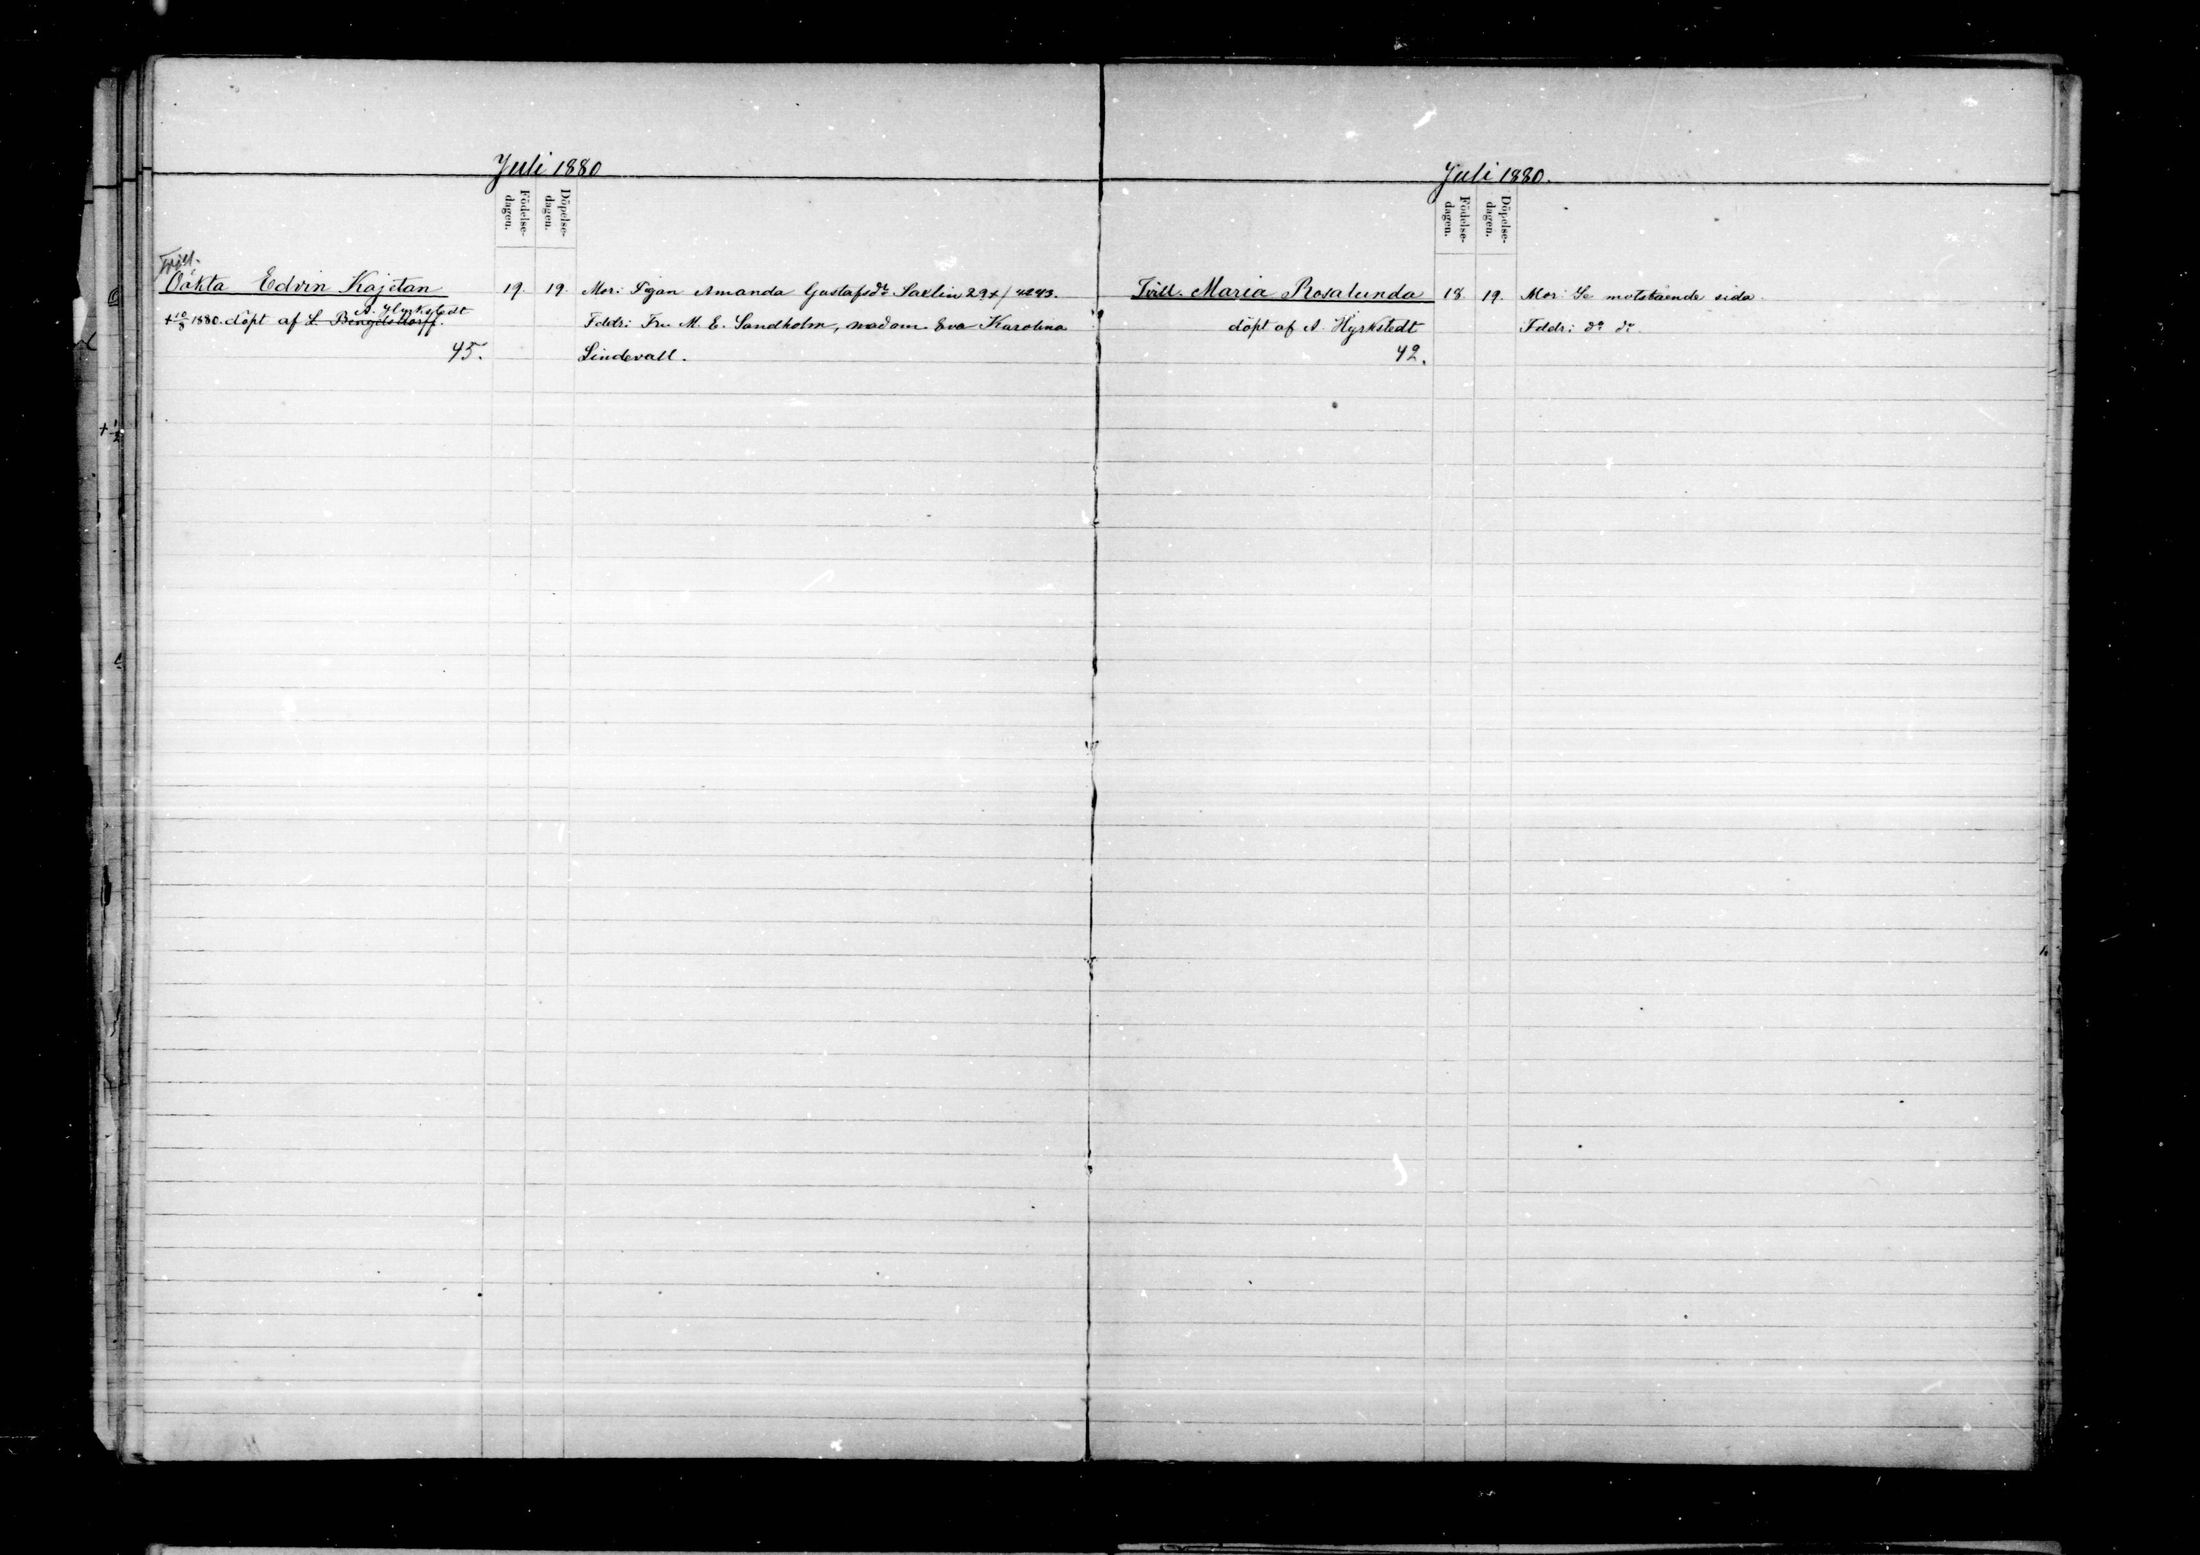 Juli 1880
Födelse-
dagen.
Döpelse-
dagen.
Tvill.
Oäkta Edvin Kajetan
19. 19. Mor: Pigan Amanda Gustafsdr Saxlin 29 x/ 4243.
A. Hyrkstedt
+ 10/8 1880. döpt af L. Bengelsdorff.
Fddr: Fru M. E. Sandholm, madam Eva Karolina
45.
Lindevall.
Juli 1880.
Födelse-
dagen.
Döpelse-
dagen.
Tvill. Maria Rosalunda
18. 19. Mor: Se motstående sida.
döpt af A. Hyrkstedt
Fddr: do do.
42.